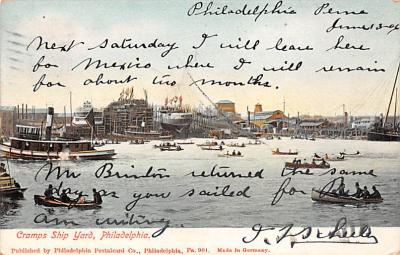 Philadelphia Penna
June 3-06
Next Saturday I will leave here
for Mexico where I will remain
for about two months.
Mr Brinton returned the same
day as you sailed for
am writing.
Cramps Ship Yard, Philadelphia.
Published by Philadelphia Postalcard Co., Philadelphia, Pa. 901. Made in Germany.